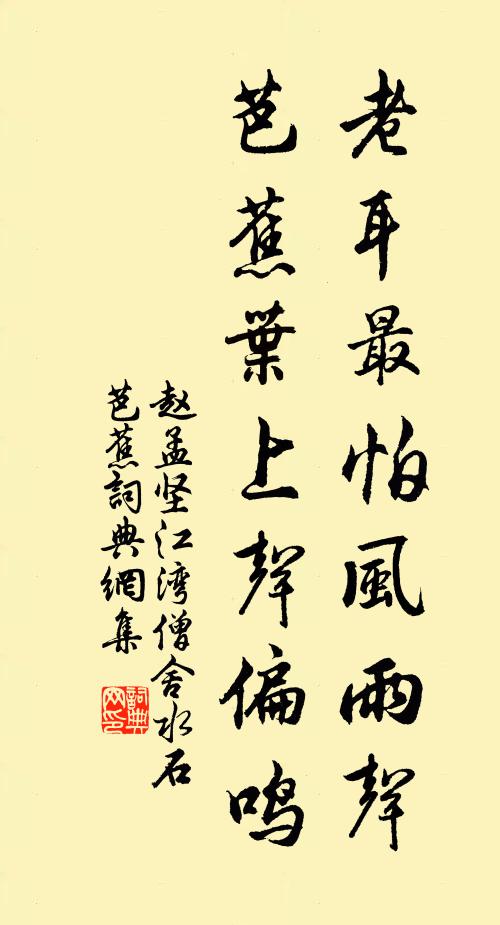 老耳最怕風雨聲
芭蕉葉上聲偏鸣
赵孟坚江湾僧舍水石
芭蕉詞典網集
詞典网印